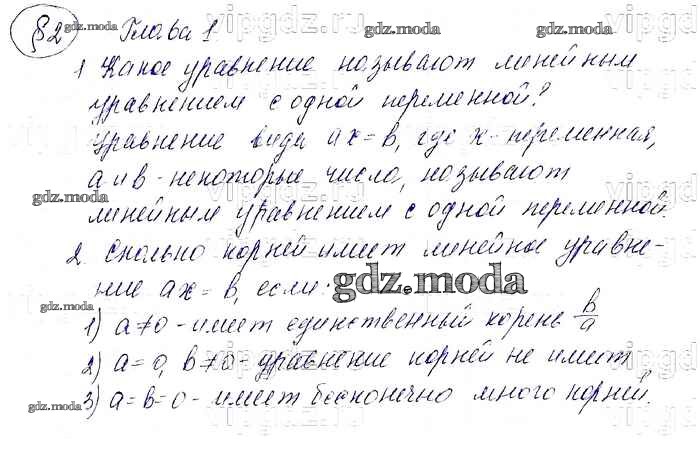 §2 Глава 1
1 Какое уравнение называют линейным
уравнением с одной переменной?
Уравнение вида ax=b, где x-переменная,
a и b-некоторые числа, называют
линейным уравнением с одной переменной.
2. Сколько корней имеет линейное уравне-
ние ax=b, если:
1) a≠0-имеет единственный корень b/a
2) a=0, b≠0-уравнение корней не имеет
3) a=b=0-имеет бесконечно много корней.
gdz.moda
gdz.moda
gdz.moda
gdz.moda
gdz.moda
gdz.moda
gdz.moda
gdz.moda
gdz.moda
vipgdz.ru
vipgdz.ru
vipgdz.ru
vipgdz.ru